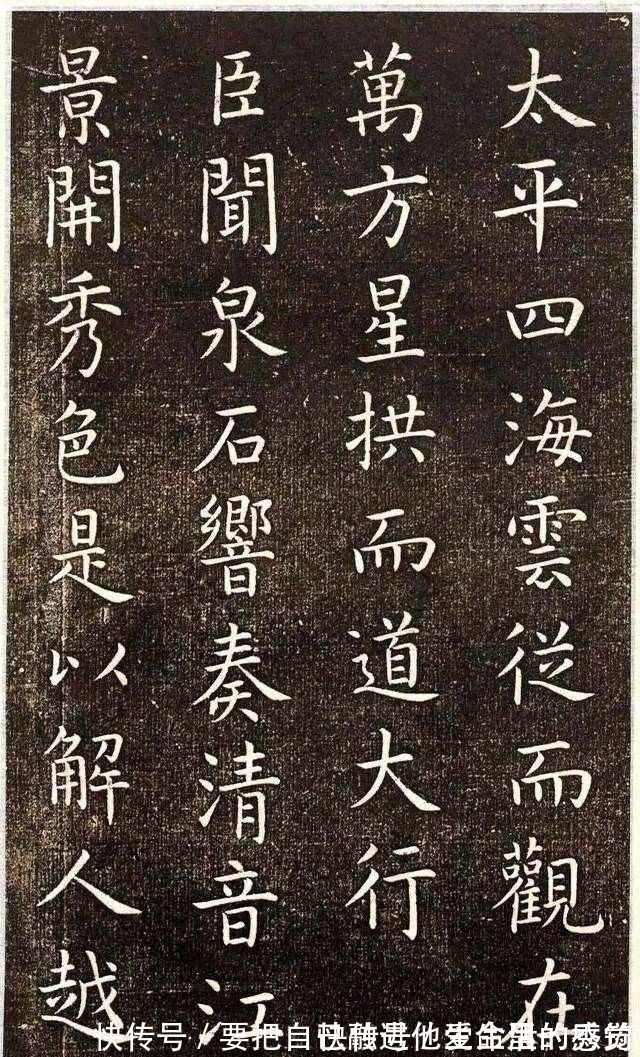 太平四海雲従而觀在
萬方星拱而道大行
臣聞泉石響奏清音江
景開秀色是以解人越
快传号/要把自己